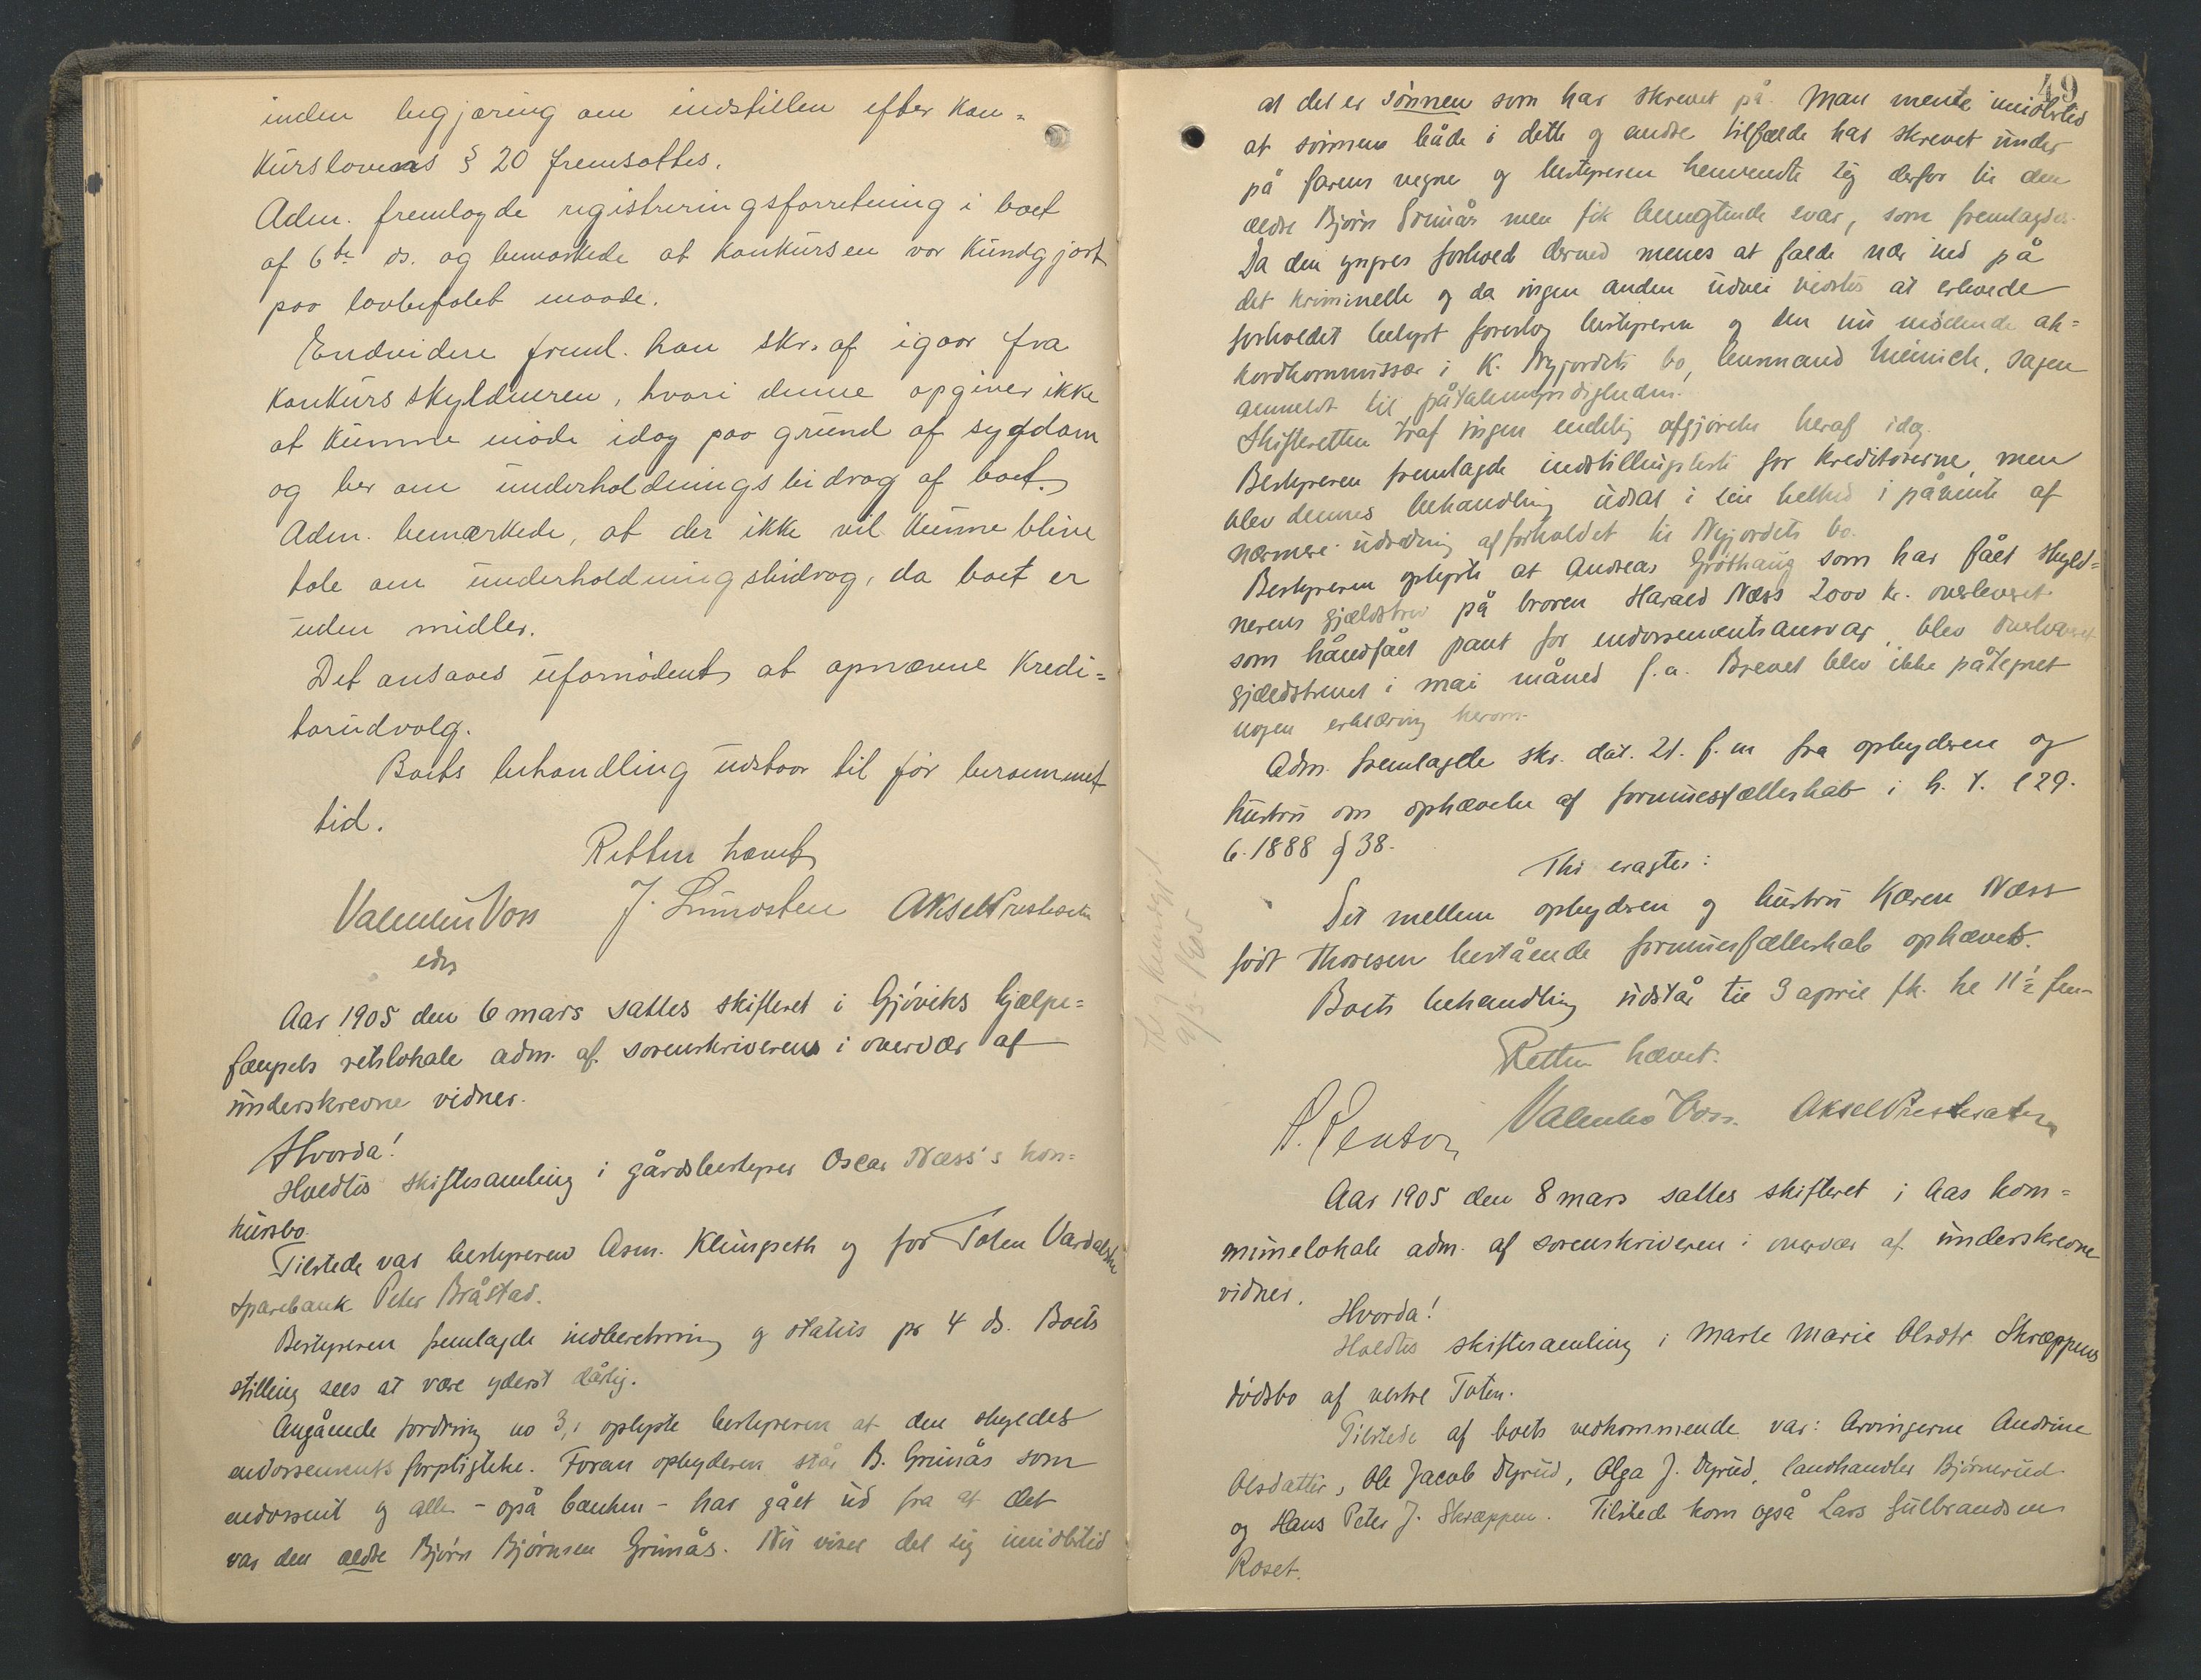 inden begjæring om indstillen efter Kon=
Kurslovens § 20 fremsattes.
Adm. fremlagde registreringsforretning i boet
af 6te ds. og bemærkede at Konkursen var Kundgjort
paa lovbefalet maade.
Endvidere freml. han skr. af igaar fra
Konkursskyldneren, hvori denne opgiver ikke
at Kunne møde idag paa grund af sygdom
og ber om underholdningsbidrag af boet.
Adm. bemærkede, at der ikke vil Kunne blive
tale om underholdningsbidrag, da boet er
uden midler.
Det ansaaes ufornødent at opnævne Kredi=
torudvalg.
Boets behandling udstaar til før berammet
tid.
Retten hævet
Valentin Voss J. Lundsten Aksel Prestesæter
eds
Aar 1905 den 6 mars sattes skifteret i Gjøviks hjælpe=
fængsels retslokale adm. af sorenskriveren i overvær af
underskrevne vidner.
Hvorda!
Holdtes skiftesamling i gårdsbestyrer Oscar Næss's kon=
kursbo.
Tilstede var bestyreren Asm. Klungseth og for Toten Vardalske
Sparebank Peter Bråstad.
Bestyreren fremlagde indberetning og status pr 4 ds. Boets
stilling sees at være yderst dårlig.
Angående fordring no 3, oplyste bestyreren at den skyldes
endorsements forpligtelse. Foran opbyderen står B. Grimås som
endorsent og alle - også banken - har gået ud fra at det
var den ældre Bjørn Bjørnsen Grimås. Nu viser det sig imidlertid
49
at det er sønnen som har skrevet på. Man mente imidlertid
at sønnen både i dette og andre tilfælde har skrevet under
på farens vegne og bestyreren henvendte sig derfor til den
ældre Bjørn Grimås men fik benegtende svar, som fremlagdes.
Da den yngres forhold derved menes at falde nær ind på
det kriminelle og da ingen anden udvei vidstes at erholde
forholdet belyst foreslog bestyreren og den nu mødende ak=
kordkommissær i K. Nyjordets bo, lensmand Meinich, sagen
anmeldt til påtalemyndigheden.
Skifteretten traf ingen endelig afgjørelse heraf idag.
Bestyreren fremlagde indstillingsliste for kreditorerne, men
blev dennes behandling udsat i sin helhed i påvente af
nærmere udredning af forholdet til Nyjordets bo.
Bestyreren oplyste at Andreas Grøthaug som har fået skyld=
nerens gjældsbrev på broren Harald Næss 2000 kr. overleveret
som håndfået pant for endorsementsansvar, blev overleveret
gjældsbrevet i mai måned f.a. Brevet blev ikke påtegnet
nogen erklæring herom.
Adm. fremlagde skr. dat. 21. f.m fra opbyderen og
hustru om ophævelse af formuesfælleskab i h. t. l 29.
6. 1888 § 38.
Thi eragtes:
Det mellem opbyderen og hustru Karen Næss
født Thoresen bestående formuesfælleskab ophæves.
Boets behandling udstår til 3 april fk. kl 11½ fm
Retten hævet.
Valentin Voss. Aksel Prestesæter
Aar 1905 den 8 mars sattes skifteret i Aas kom=
munelokale adm. af sorenskriveren i overvær af underskrevne
vidner.
Hvorda!
Holdtes skiftesamling i Marte Marie Olsdtr Skræppens
dødsbo af vestre Toten.
Tilstede af boets vedkommende var: Arvingerne Andrine
Olsdatter, Ole Jacob Dyrud, Olga J. Dyrud, landhandler Bjørnerud
og Hans Peter J. Skræppen. Tilstede kom også Lars Gulbrandsen
Roset.
9/3. 1905